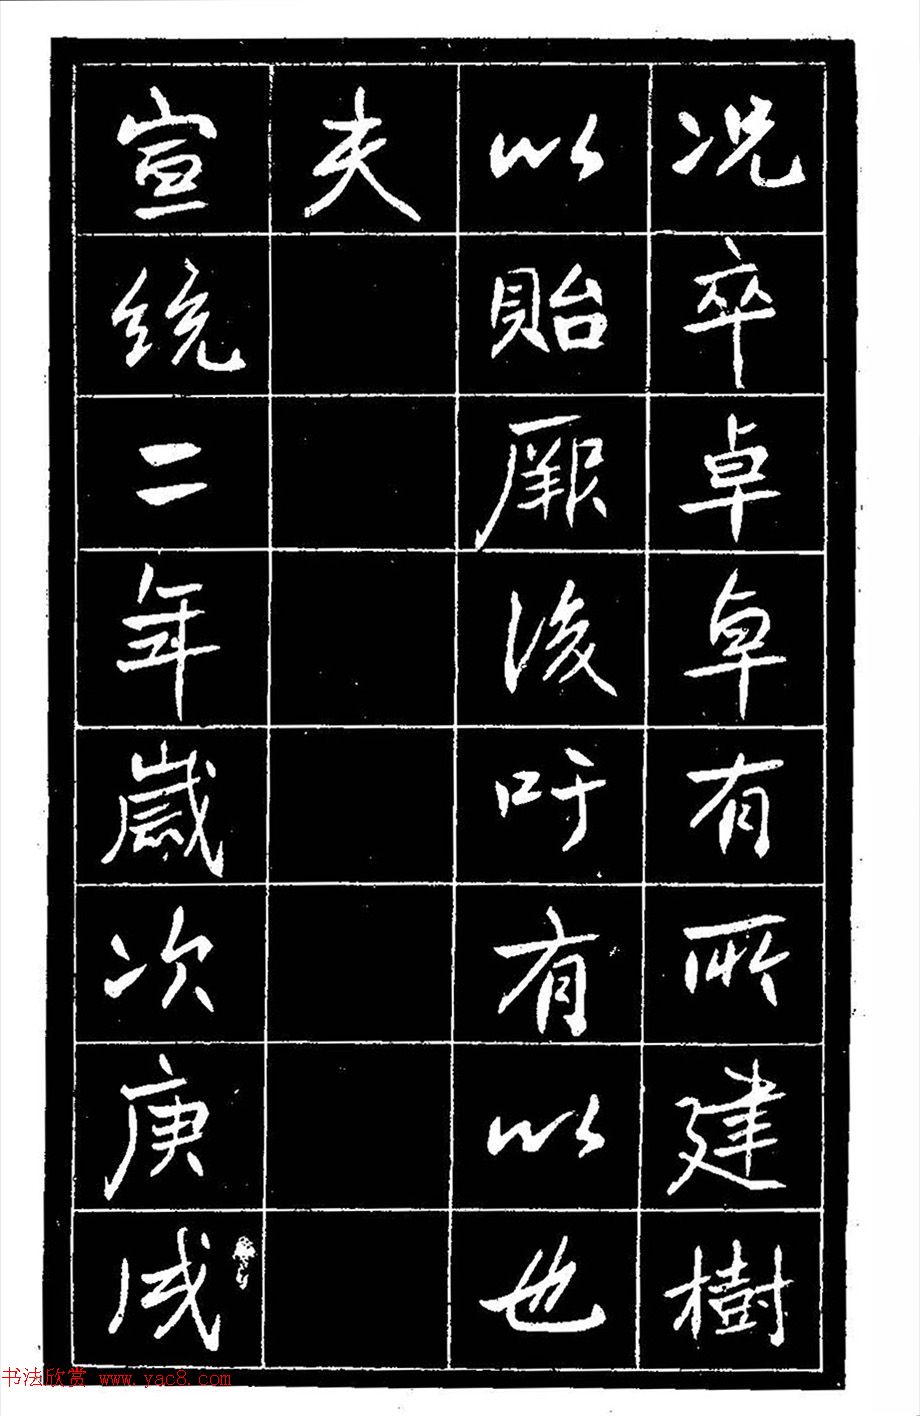 况卒卓卓有所建樹
以貽厥後吁有以也
夫
宣統二年歲次庚戌
书法欣赏 www.yac8.com